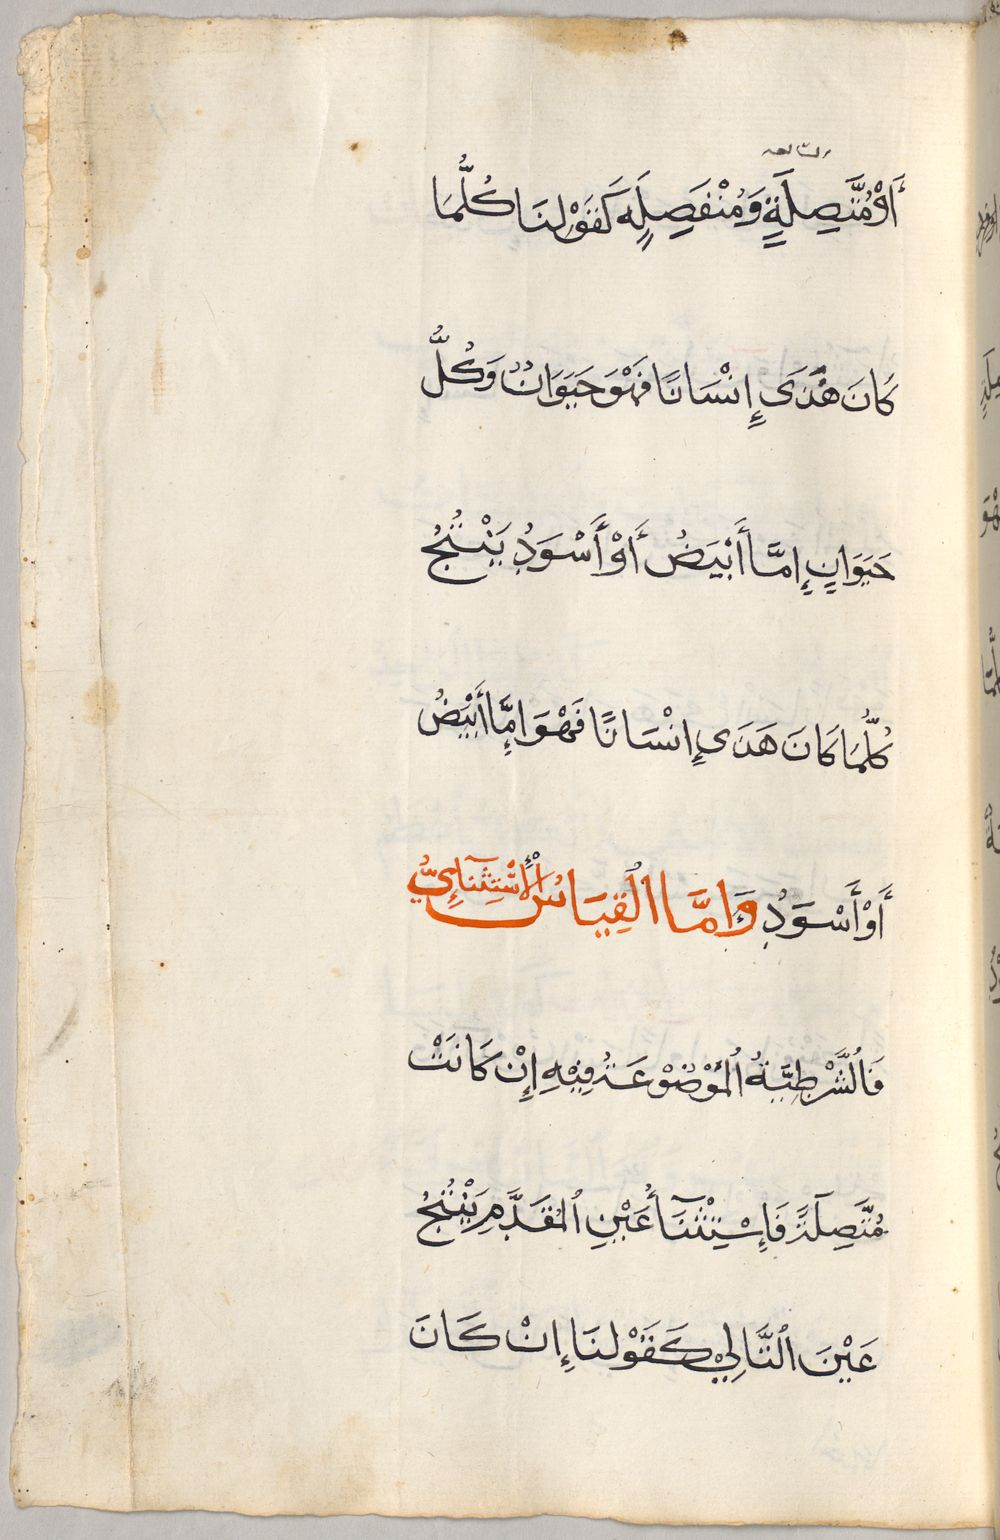 أَوْ مُتَّصِلَةٍ وَمُنْفَصِلَةٍ كَقَوْلِنَا كُلَّمَا
كَانَ هَذَى إِنْسَانًا فَهْوَ حَيَوَانٌ وَكُلُّ
حَيَوَانٍ إِمَّا أَبْيَضُ أَوْ أَسْوَدُ يَنْتُجُ
كُلَّمَا كَانَ هَذَى إِنْسَانًا فَهْوَ إِمَّا أَبْيَضُ
أَوْ أَسْوَدُ وَإِمَّا الْقِيَاسُ الْأَسْتِثْنَآئِيُّ
فَالشَّرْطِيَّةُ الْمَوْضُوْعَةُ فِيْهِ إِنْ كَانَتْ
مُتَّصِلَةً فَإِسْتِثْنَآأُ عَيْنِ الْمُقَدَّمِ يَنْتُجُ
عَيْنَ التَّالِيْ كَقَوْلِنَا إِنْ كَانَ